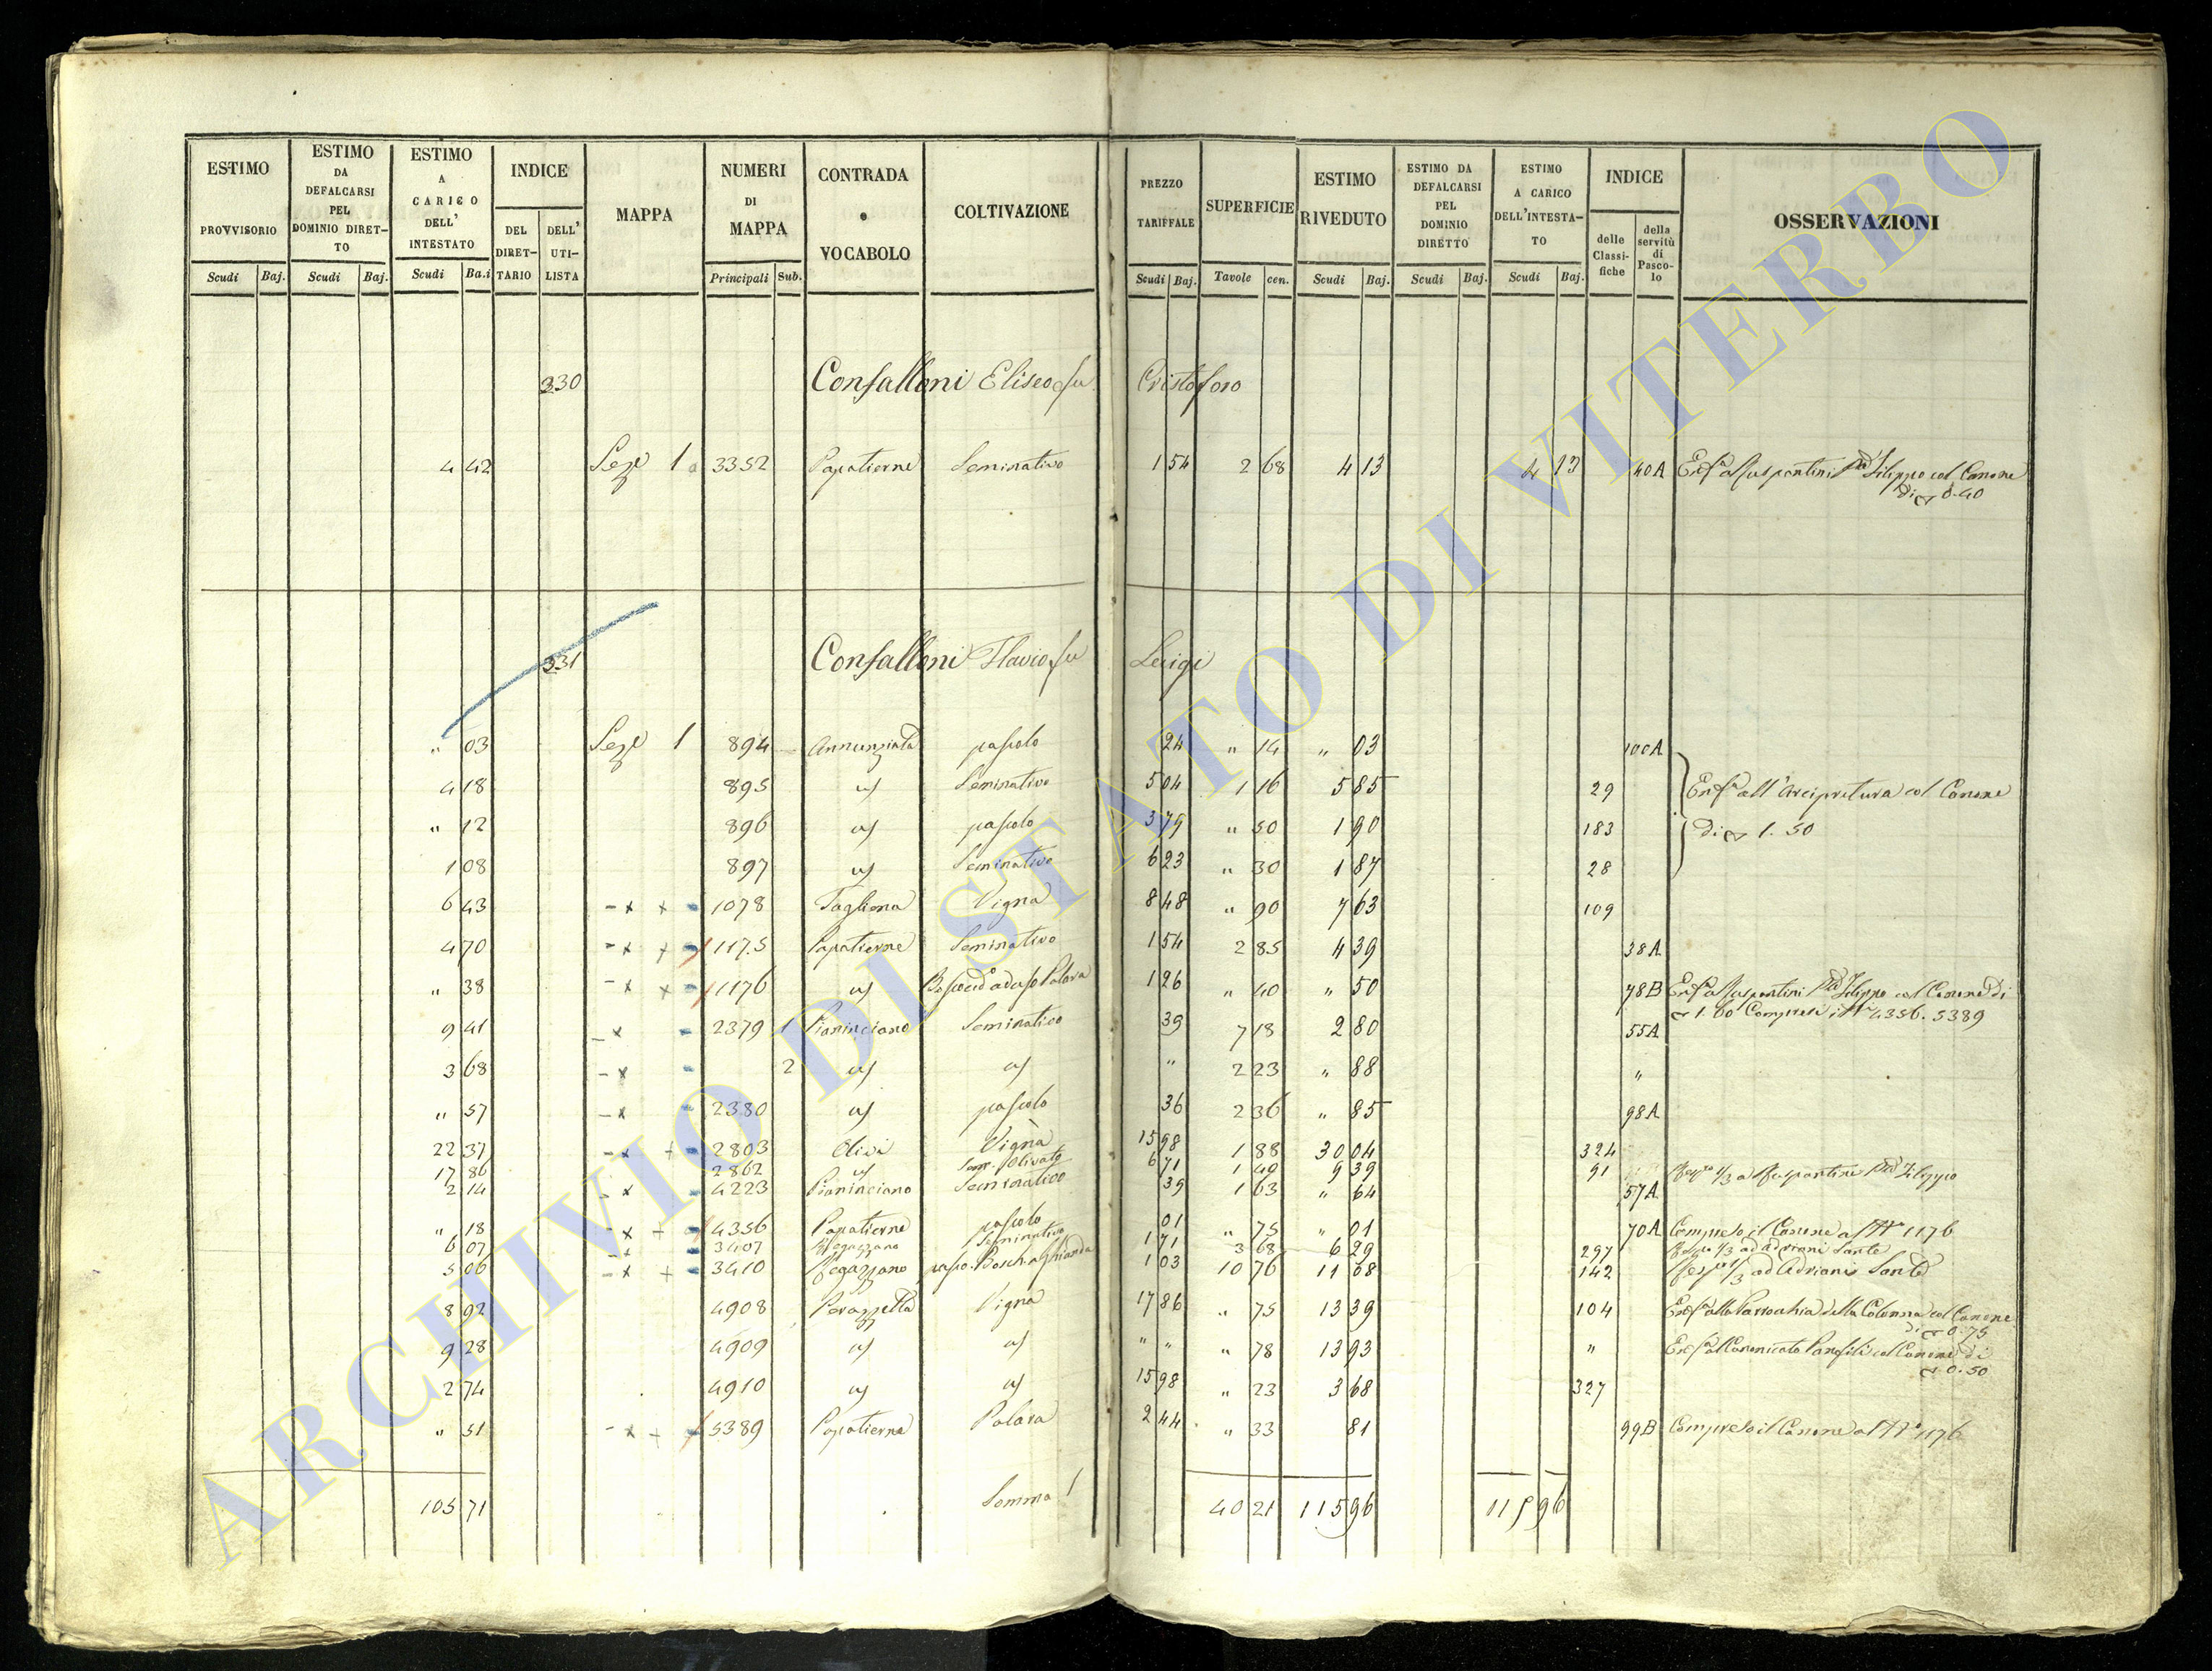 ESTIMO PROVVISORIO Scudi Baj.
ESTIMO DA DEFALCARSI PEL DOMINIO DIRETTO Scudi Baj.
ESTIMO A CARICO DELL' INTESTATO Scudi Ba.i
INDICE DEL DIRETTARIO DELL' UTILISTA
MAPPA
NUMERI DI MAPPA Principali Sub.
CONTRADA o VOCABOLO
COLTIVAZIONE
PREZZO TARIFFALE Scudi Baj.
SUPERFICIE Tavole cen.
ESTIMO RIVEDUTO Scudi Baj.
ESTIMO DA DEFALCARSI PEL DOMINIO DIRETTO Scudi Baj.
ESTIMO A CARICO DELL'INTESTATO Scudi Baj.
INDICE delle Classifiche della servitù di Pascolo
OSSERVAZIONI
330 Confalloni Eliseo fu Cristoforo
4 42 Sez 1a 3352 Papatierne Seminativo 1 54 2 68 4 13 4 13 40A Enfa a Filippo col Canone
di 0.40
331 Confalloni Flavio fu Luigi
" 03 Seze 1 894 Annunziata pascolo 24 " 14 " 03 100A
4 18 895 Seminativo 5 04 1 16 5 85 29 Enfa all'Arcipretura col Canone
" 12 896 pascolo 3 79 " 50 1 90 183 di 1.50
1 08 897 Seminativo 6 23 " 30 1 87 28
6 43 - x x 1078 Tagliena Vigna 8 48 " 90 7 63 109
4 70 - x + 1175 Papatierne Seminativo 1 54 2 85 4 39 38A
" 38 - x x 1176 1 26 " 40 " 50 78B Enfa a Filippo col Canone di
1.60 Compresi i N 4356. 5389
9 41 - x 2379 1 Pianinciano Seminativo 39 7 18 2 80 55A
3 68 - x 2 " 2 23 " 88 "
" 57 - x 2380 pascolo 36 2 36 " 85 98A
22 37 - x + 2803 Olivi Vigna 15 98 1 88 30 04 324
17 86 2862 Sem. Olivato 6 71 1 40 9 39 91 1/3 a Filippo
2 14 - x 4223 Pianinciano Seminativo 39 1 63 " 64 57A
" 18 - x + 4356 Papatierne pascolo 01 " 75 " 01 70A Compreso il Canone al N° 1176
6 07 - x 3407 Seminativo 1 71 3 68 6 29 297 1/3 ad Adriani Sante
5 06 - x + 3410 1 03 10 76 11 08 142 1/3 ad Adriani Sante
8 92 4908 Vigna 17 86 " 75 13 39 104 Enfa alla Parrochia della Colonna col Canone
di 0.75
9 28 4909 " " " 78 13 93 " Enfa al Canonicato Panfili col Canone di
0.50
2 74 4910 15 98 " 23 3 68 327
" 51 - x + 5389 Papatierne Palara 2 44 " 33 81 99B Compreso il Canone al N° 1176
105 71 Somma 40 21 115 96 115 96
ARCHIVIO DI STATO DI VITERBO